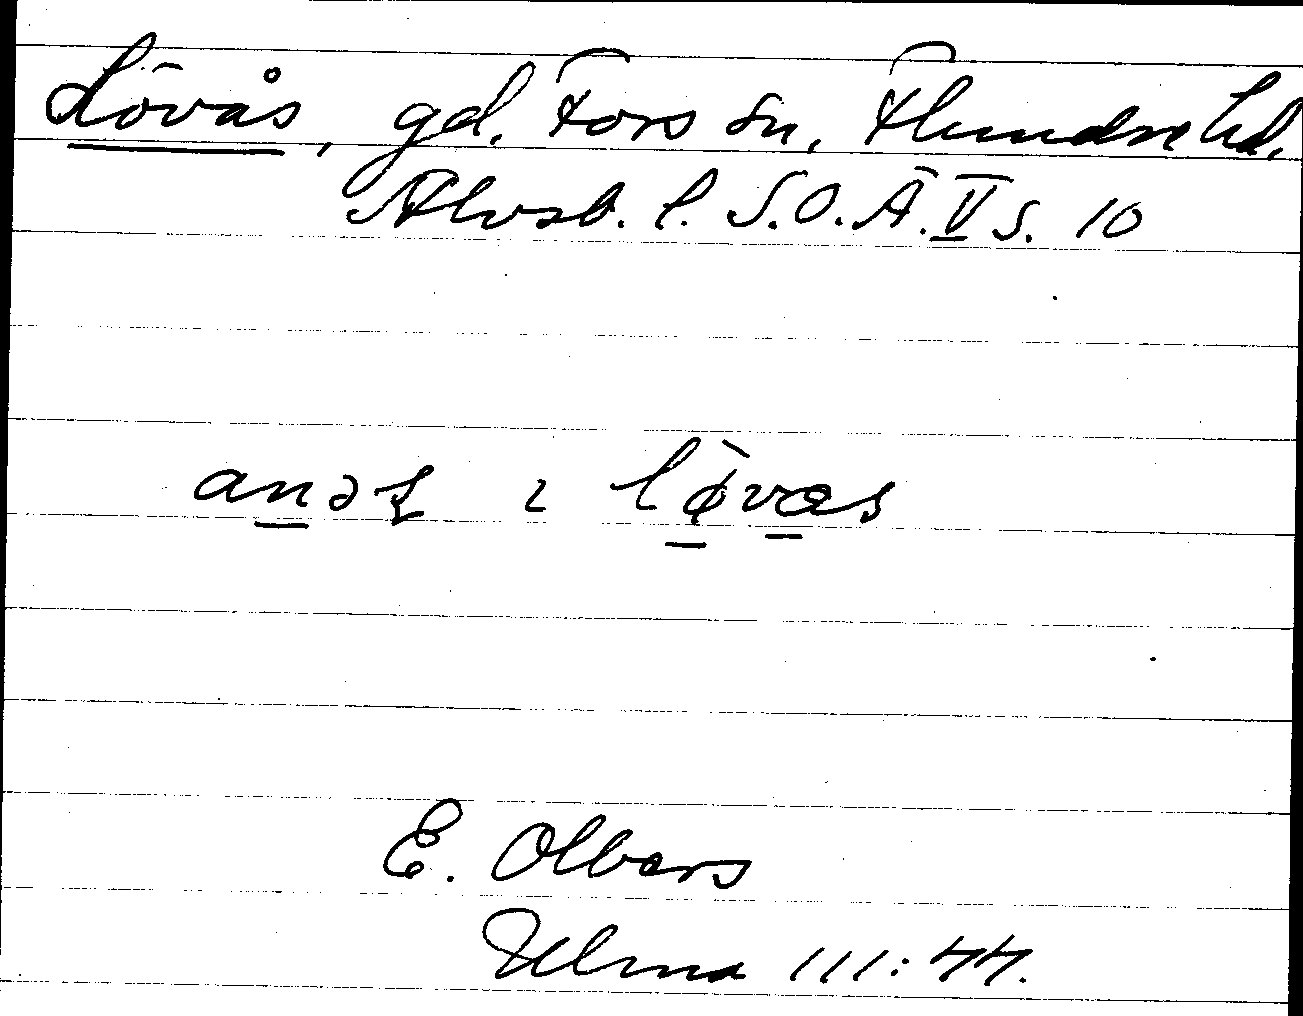 Lövås, gd. Fors sn, Flundre hd.
Älvsb. l. S.O.Ä. V s. 10
E. Olbers
Ulma 111:44.